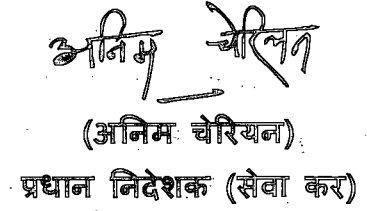 अनिम चेरियन
(अनिम चेरियन)
प्रधान निदेशक (सेवा कर)